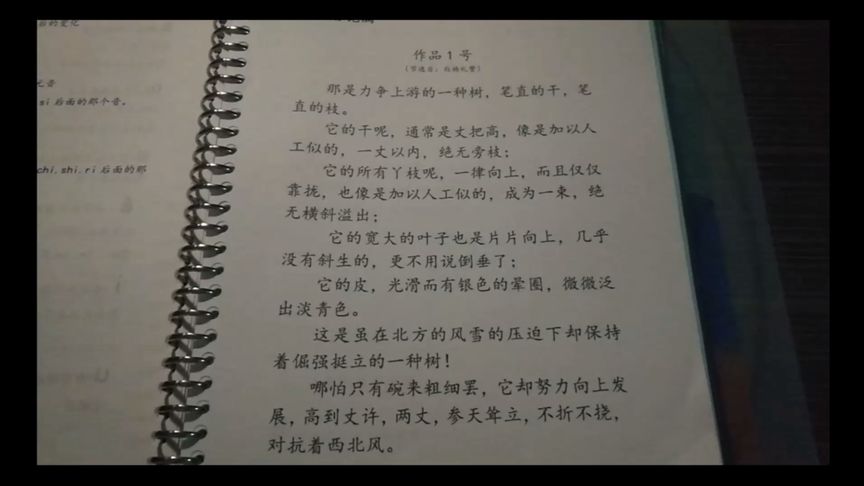 后的变化
元音
si 后面的那个音。
chi.shi.ri 后面的那
作品1号
(节选自:白杨礼赞)
那是力争上游的一种树，笔直的干，笔
直的枝。
它的干呢，通常是丈把高，像是加以人
工似的，一丈以内，绝无旁枝；
它的所有丫枝呢，一律向上，而且仅仅
靠拢，也像是加以人工似的，成为一束，绝
无横斜溢出；
它的宽大的叶子也是片片向上，几乎
没有斜生的，更不用说倒垂了；
它的皮，光滑而有银色的晕圈，微微泛
出淡青色。
这是虽在北方的风雪的压迫下却保持
着倔强挺立的一种树！
哪怕只有碗来粗细罢，它却努力向上发
展，高到丈许，两丈，参天耸立，不折不挠，
对抗着西北风。